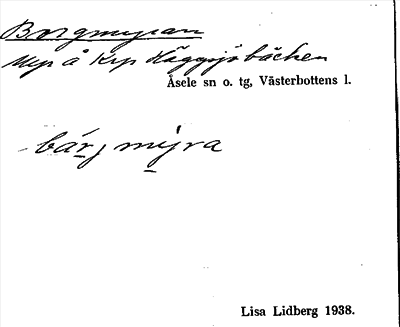 Borgmyran
Myr å Krp Häggsjöbäcken
Åsele sn o. tg, Västerbottens l.
bárj mýra
Lisa Lidberg 1938.